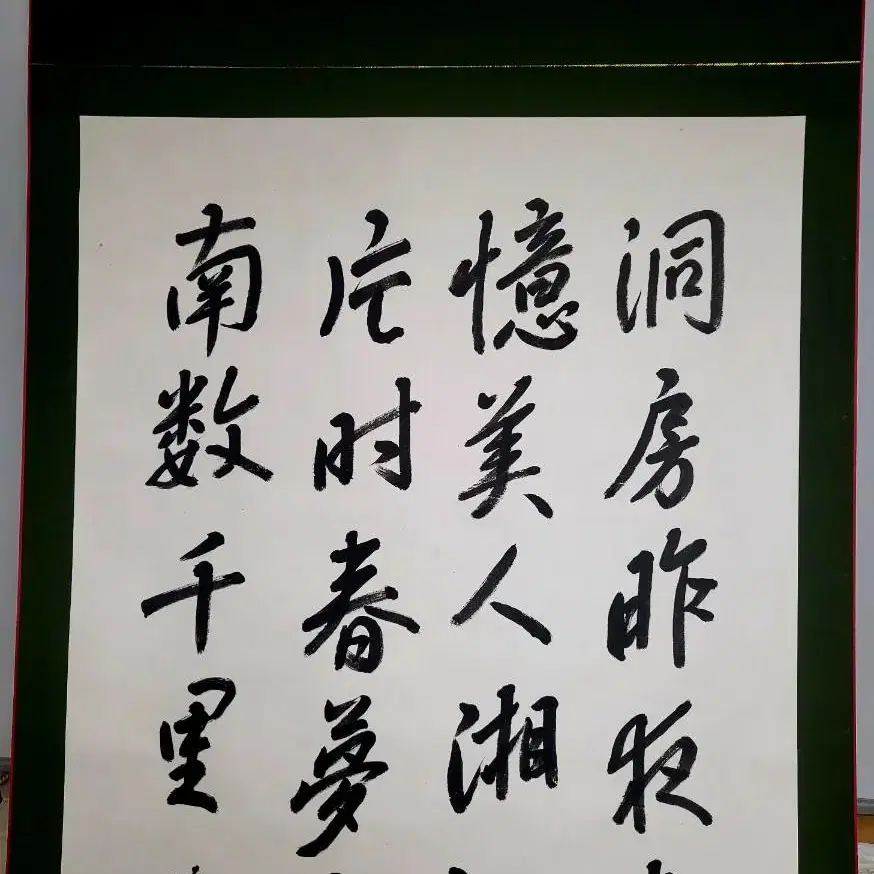 洞房昨夜
憶美人湘
片时春夢
南数千里